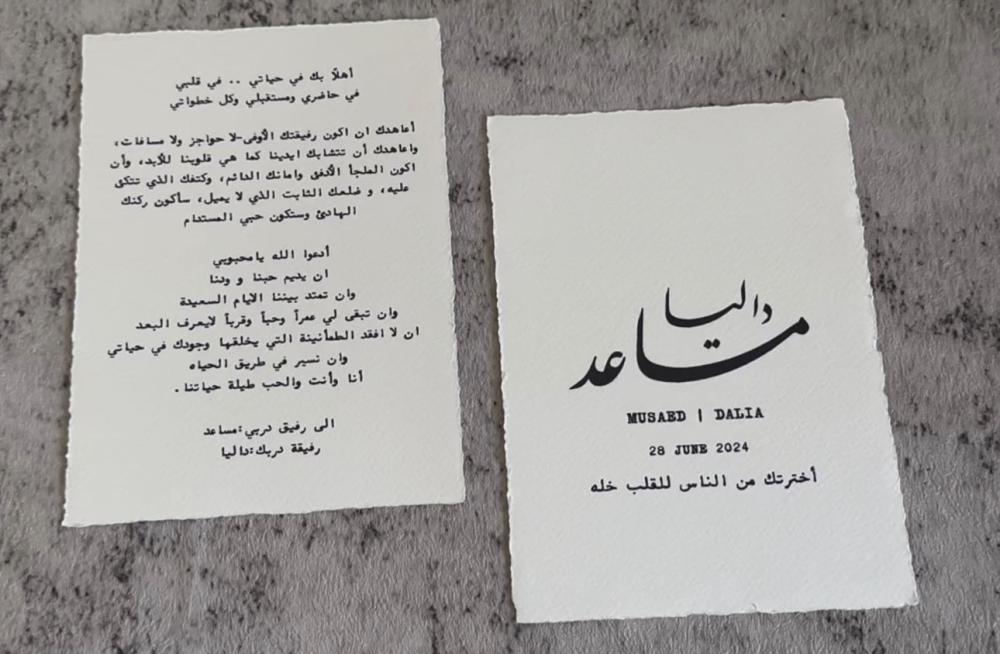 أهلاً بك في حياتي .. في قلبي
في حاضري ومستقبلي وكل خطواتي
أعاهدك ان اكون رفيقتك الأوفى-لا حواجز ولا مسافات،
واعاهدك أن تتشابك ايدينا كما هي قلوبنا للأبد، وأن
اكون الملجأ الأدفئ وامانك الدائم، وكتفك الذي تتكئ
عليه، و ضلعك الثابت الذي لا يميل، سأكون ركنك
الهادئ وستكون حبي المستدام
أدعوا الله يامحبوبي
ان يديم حبنا و ودنا
وان تمتد بيننا الايام السعيدة
وان تبقى لي عمراً وحباً وقرباً لايعرف البعد
ان لا افقد الطمأنينة التي يخلقها وجودك في حياتي
وان نسير في طريق الحياه
أنا وأنت والحب طيلة حياتنا.
الى رفيق دربي:مساعد
رفيقة دربك:داليا
داليا
مساعد
MUSAED | DALIA
28 JUNE 2024
أخترتك من الناس للقلب خله